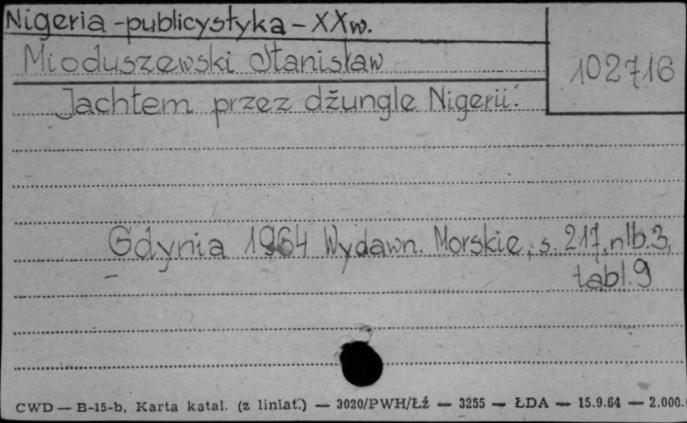 Nigeria - publicystyka - XXw.
Mioduszewski Stanisław
102716
Jachtem przez dżungle Nigerii.
Gdynia 1964 Wydawn. Morskie, s. 217, nlb. 3,
tabl. 9
CWD — B-15-b, Karta katal. (z liniat.) — 3020/PWH/ŁŹ — 3255 — ŁDA — 15.9.64 — 2.000.